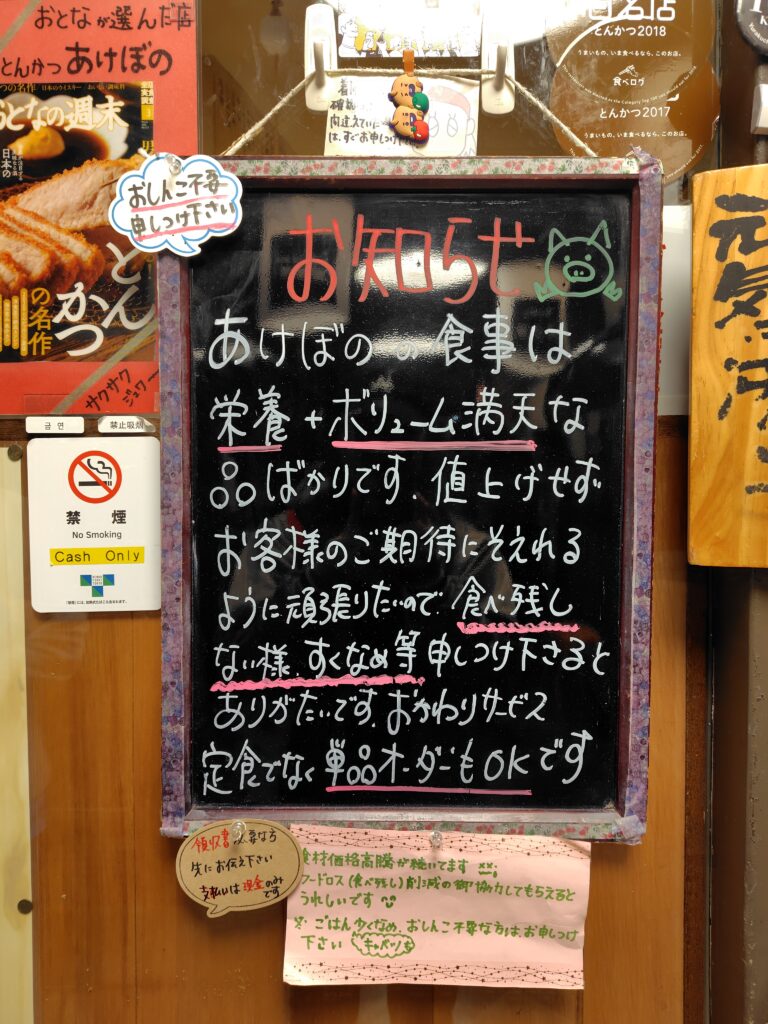 おとなが選んだ店
とんかつ あけぼの
おとなの週末
とんかつ
の名作
サクサク
ジュワー
とんかつ 2018
うまいもの、いま食べるなら、このお店。
食べログ
とんかつ 2017
うまいもの、いま食べるなら、このお店。
は、すぐお申しつけ
おしんこ不要
申しつけ下さい
お知らせ
あけぼのの食事は
栄養+ボリューム満天な
品ばかりです.値上げせず
お客様のご期待にそえれる
ように頑張りたいので、食べ残し
ない様、すくなめ等申しつけ下さると
ありがたいです.おかわりサービス
定食でなく単品オーダーもOKです
금연
禁止吸烟
禁煙
No Smoking
Cash Only
元気
領収書必要な方
先にお伝え下さい
支払いは現金のみ
です
食材価格高騰が続いてます
フードロス(食べ残し)削減の御協力してもらえると
うれしいです
※ごはん少くなめ、おしんこ不要な方は、お申しつけ
下さい キャベツも